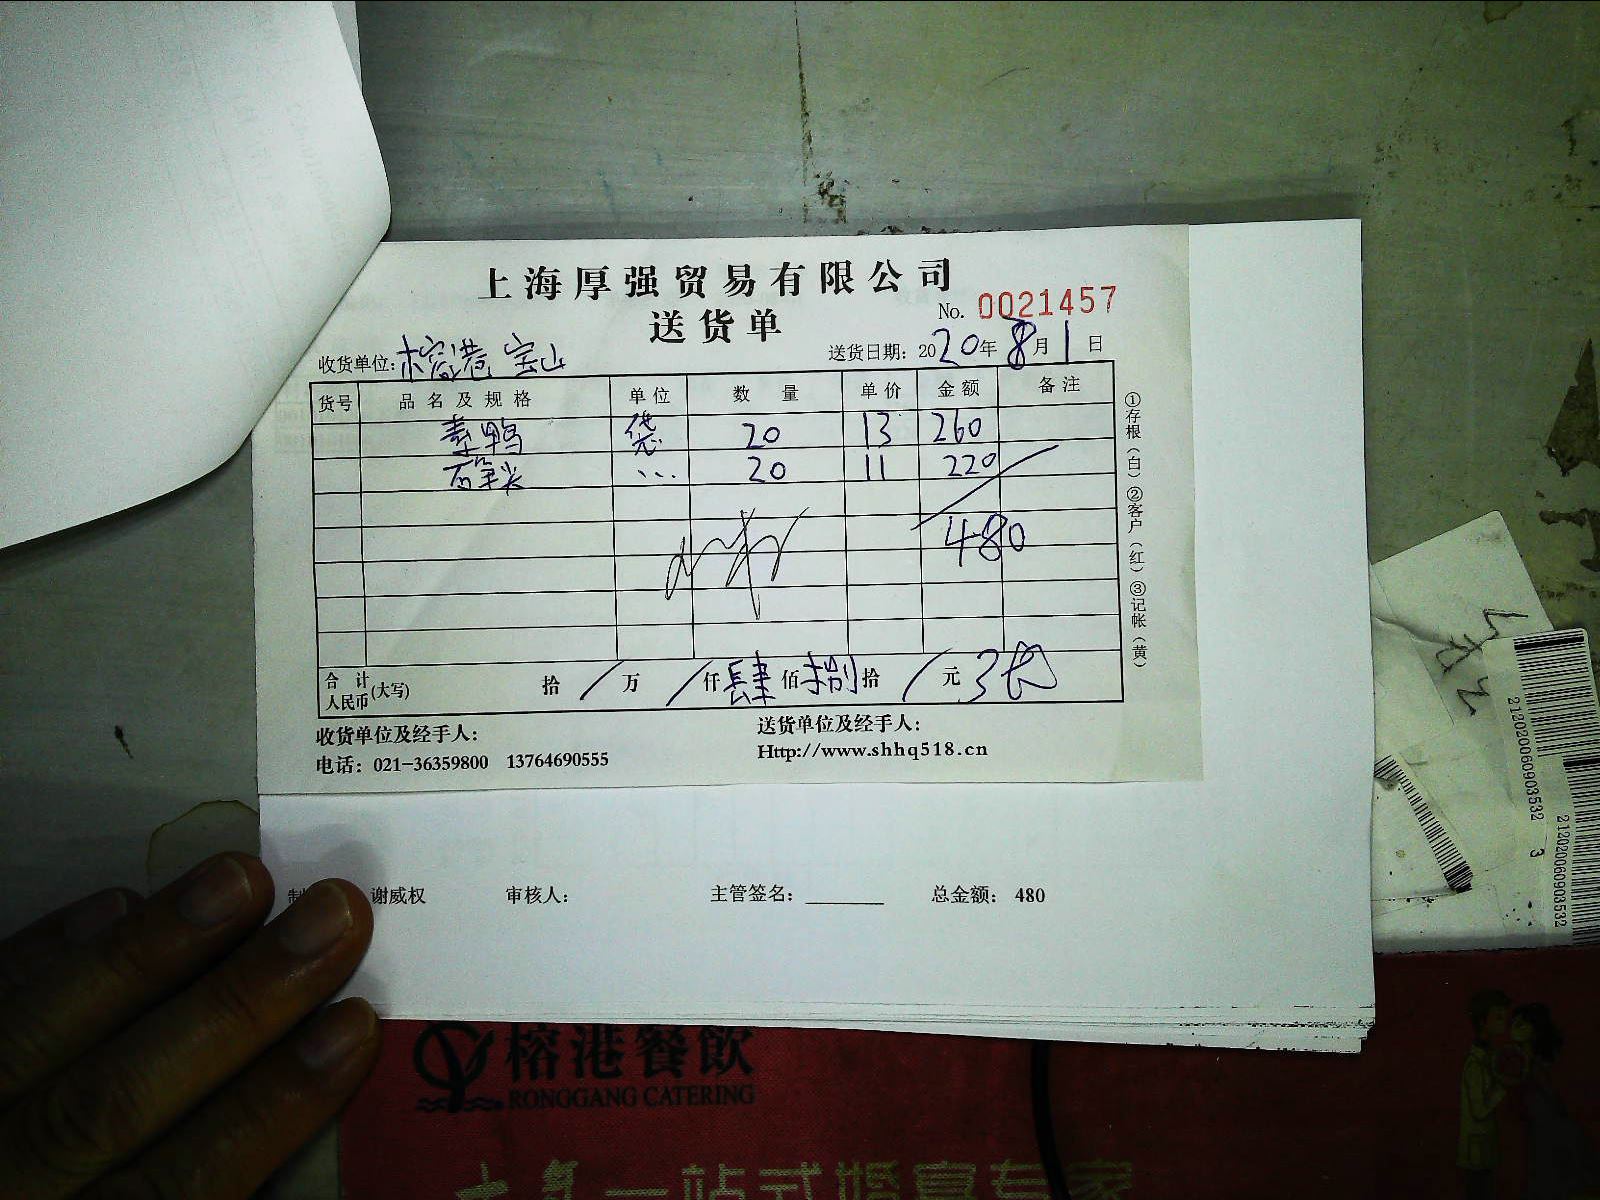 上海厚强贸易有限公司
送货单
No. 0021457
收货单位: 榕港 宝山
送货日期: 2020年8月1日
货号 品名及规格 单位 数量 单价 金额 备注
素鸭 袋 20 13 260
石笋尖 ... 20 11 220
480
合计人民币(大写) 拾/万/仟肆佰捌拾/元
收货单位及经手人:
送货单位及经手人:
电话: 021-36359800 13764690555
Http://www.shhq518.cn
①存根(白)②客户(红)③记帐(黄)
谢威权 审核人: 主管签名: 总金额: 480
2120200609035323
212020060903532
榕港餐飲
RONGGANG CATERING
一站式婚宴专家